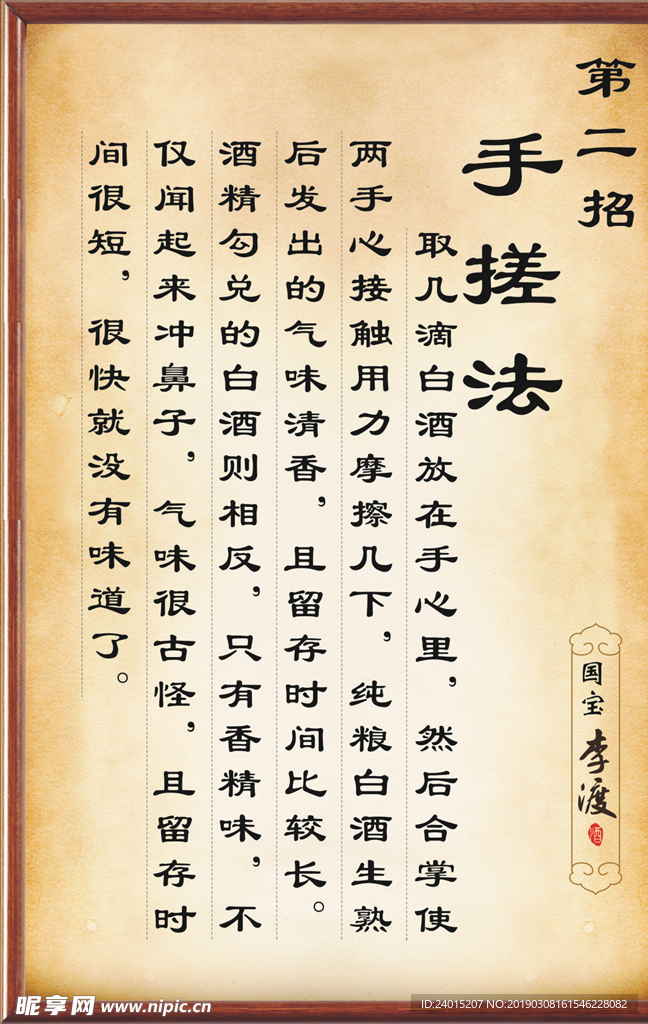 第二招
手搓法
取几滴白酒放在手心里，然后合掌使
两手心接触用力摩擦几下，纯粮白酒生熟
后发出的气味清香，且留存时间比较长。
酒精勾兑的白酒则相反，只有香精味，不
仅闻起来冲鼻子，气味很古怪，且留存时
间很短，很快就没有味道了。
国宝李渡
酒
昵享网 www.nipic.cn
ID:24015207 NO:20190308161546228082